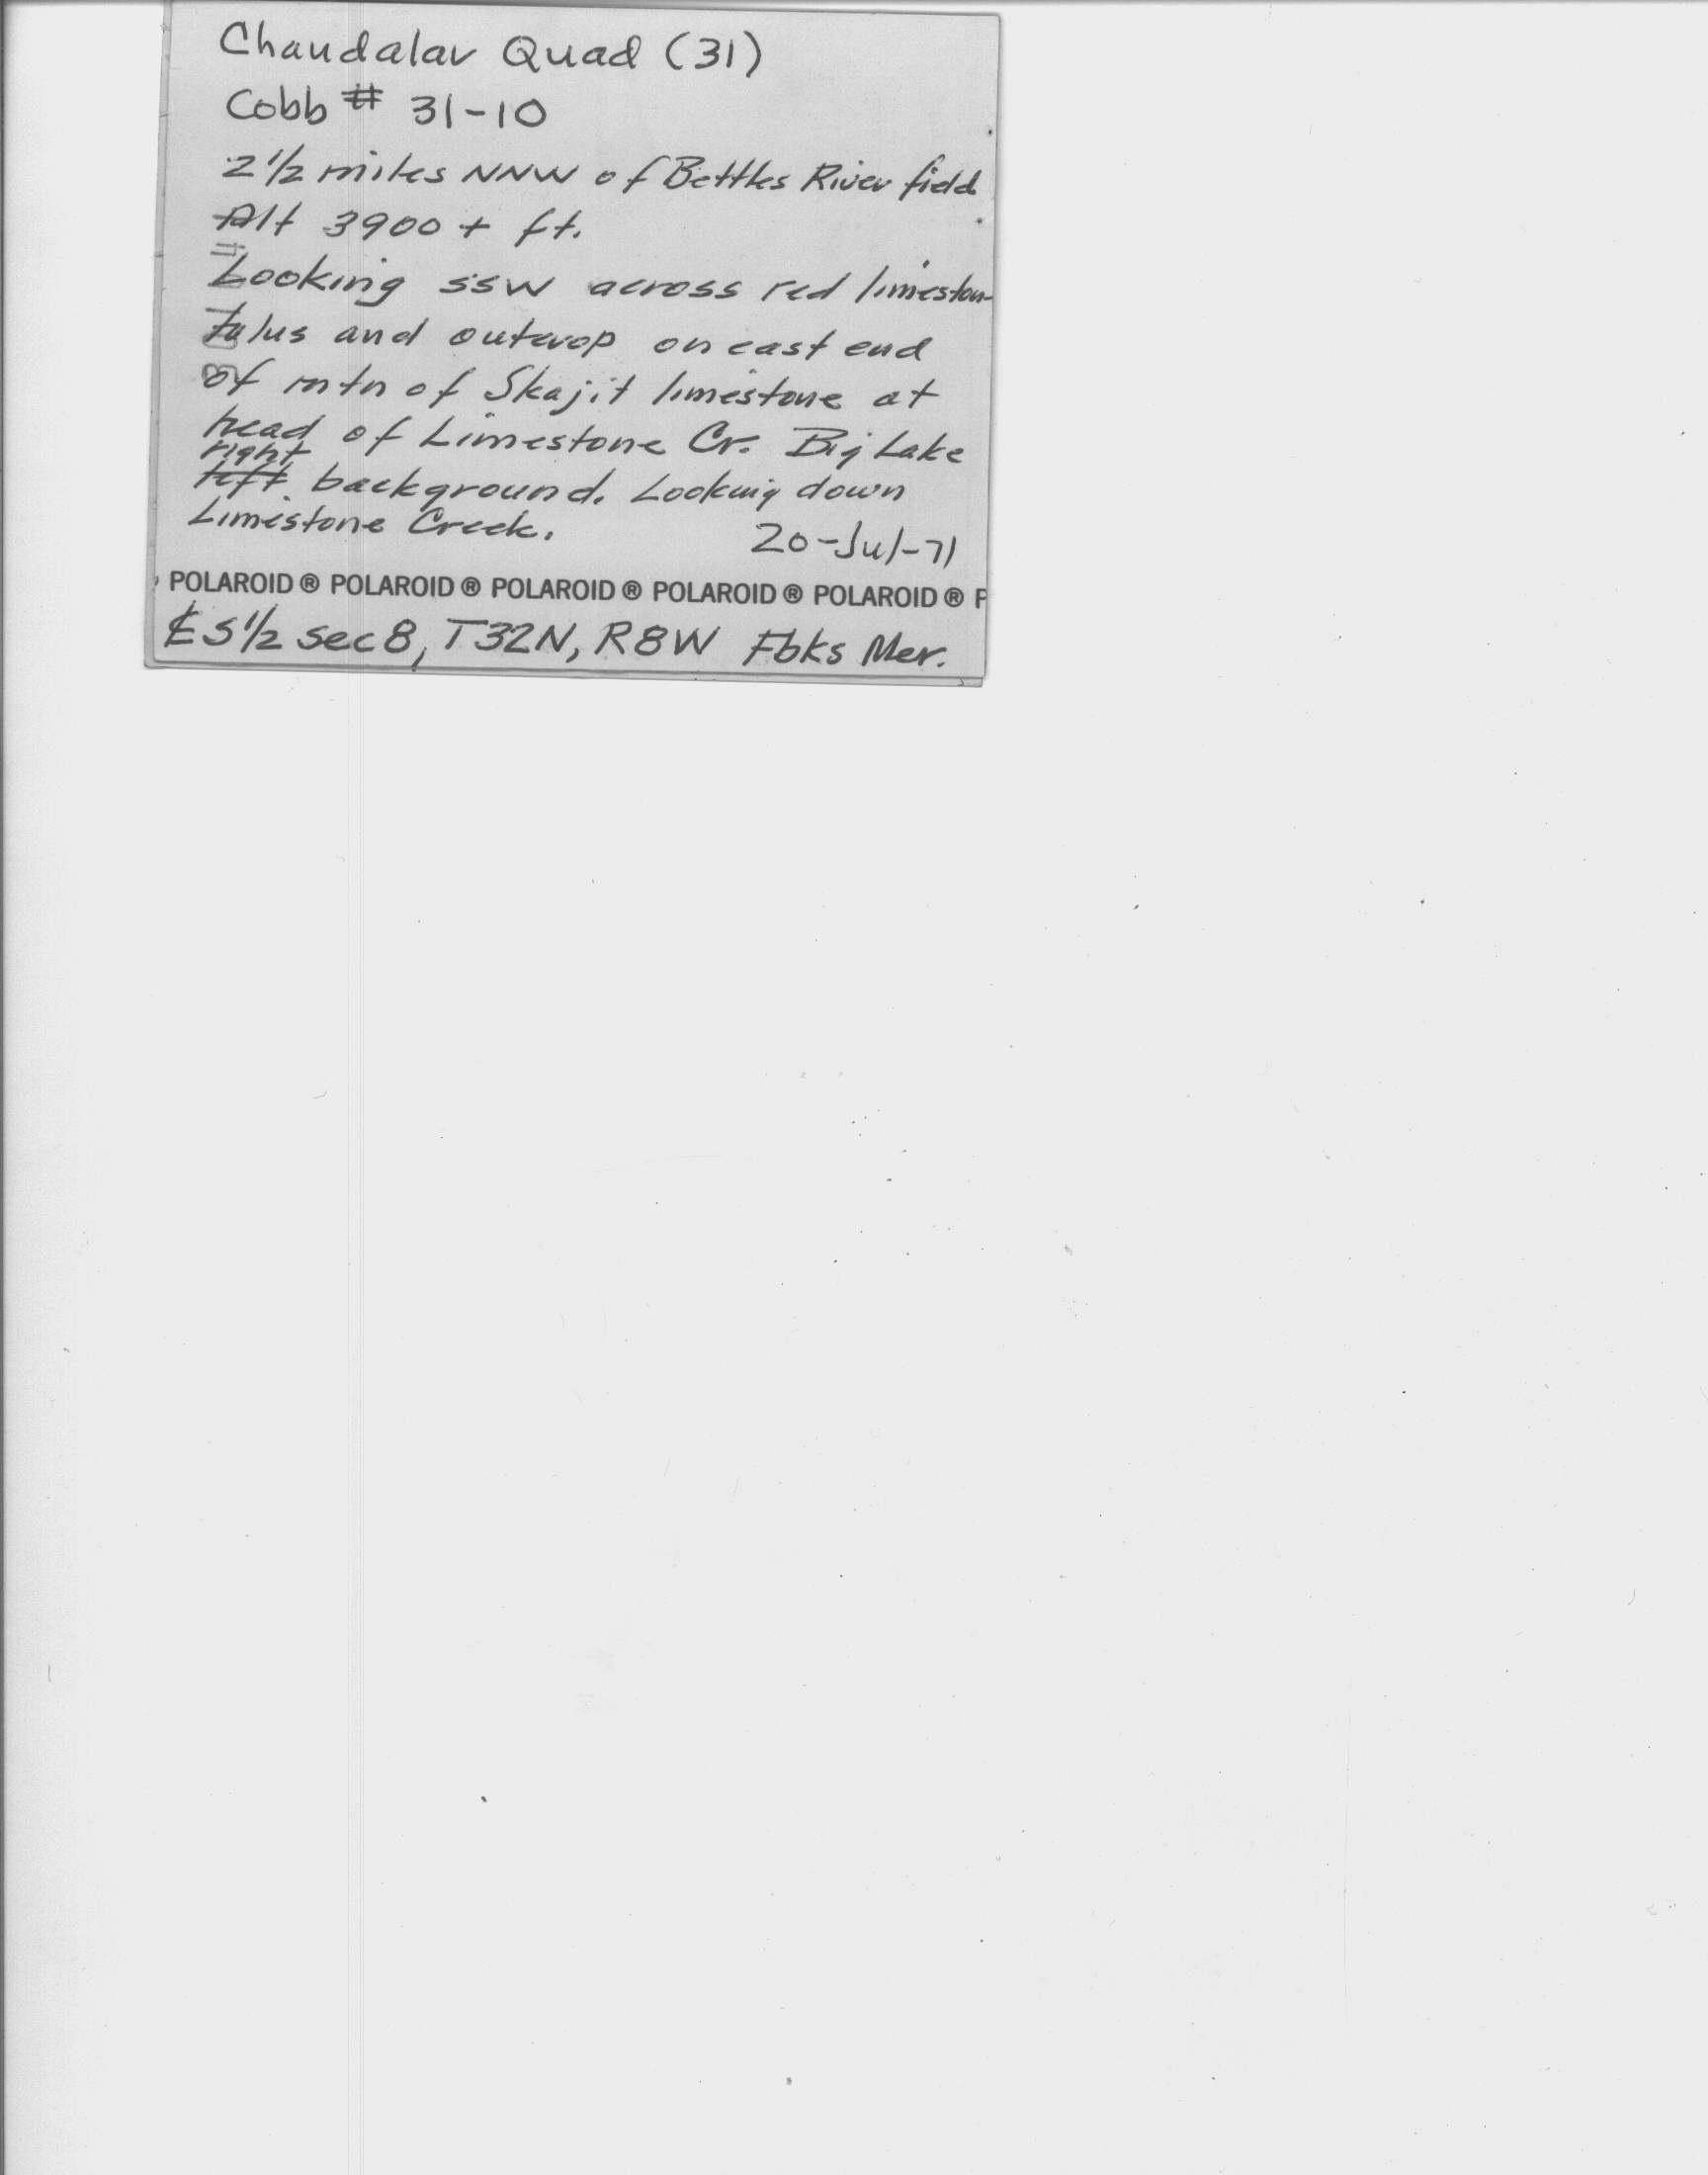 Chandalar Quad (31)
Cobb # 31-10
2 1/2 miles NNW of Bettles River field
Alt 3900 + ft.
Looking SSW across red limestone
talus and outcrop on east end
of mtn of Skajit limestone at
head of Limestone Cr. Big Lake
right
left background. Looking down
Limestone Creek.
20-Jul-71
POLAROID ® POLAROID ® POLAROID ® POLAROID ® POLAROID ® P
S 1/2 sec 8, T32N, R8W Fbks Mer.